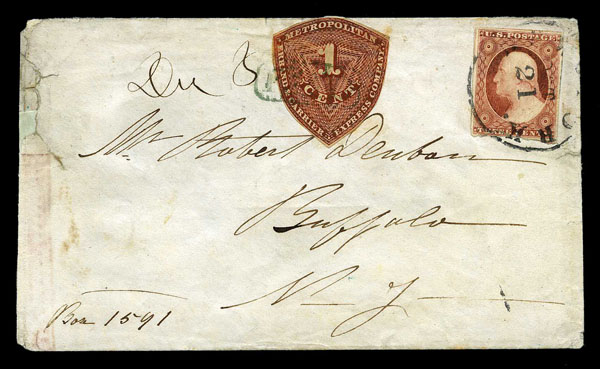 Du 3
METROPOLITAN
1
CENT
ERRAND & CARRIER EXPRESS COMPANY.
U.S. POSTAGE
THREE CENTS
12
Mr Robert Denbon
Buffalo
N. Y.
Box 1591